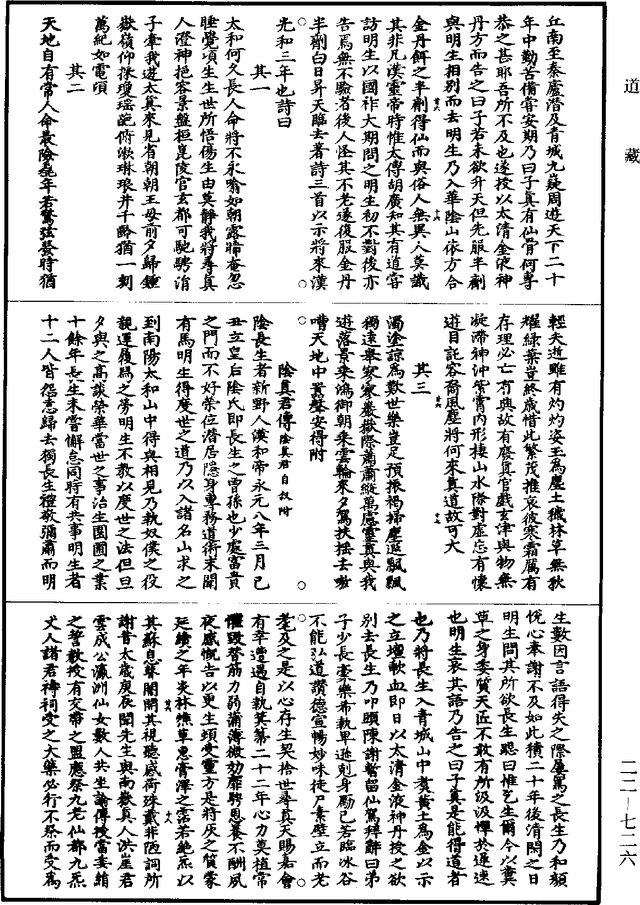 道藏
丘南至秦廬潛及青城九嶷周遊天下二十
年中勤苦備嘗安期乃曰子真有仙骨何專
恭之甚耶吾所不及也遂授以太清金液神
丹方而告之曰子若未欲升天但先服半劑
與明生相別而去明生乃入華陰山依方合
金丹餌之半劑得仙而與俗人無異人莫識
其非凡漢靈帝時惟太傅胡廣知其有道嘗
訪明生以國祚大期問之明生初不對後亦
告焉無不驗者後人怪其不老遂復服金丹
半劑白日昇天臨去著詩三首以示將來漢
光和三年也詩曰
其一
太和何久長人命將不永噏如朝露晞奄忽
睡覺頃生生世所悟傷生由莫靜我將尋真
人澄神挹容景盤桓崑陵宮玄都可馳騁涓
子牽我遊太真來見省朝朝王母前夕歸鍾
嶽嶺仰採瓊瑤葩俯漱琳琅井千齡猶一刻
萬紀如電頃
其二
天地自有常人命最險巇年若驚弦發時猶
輕矢逝雖有灼灼姿玉為塵土穢林草無秋
耀綠葉豈終歲惜此繁茂摧哀彼寒霜厲有
存理必亡有興故有廢真官戲玄津與物無
凝滯神沖紫霄內形棲山水際對虛忘有懷
遊目託容裔風塵將何來真道故可大
其三
濁塗諒為歎世樂豈足預振褐掃塵遊飄飄
獨遠舉寥寥巖嶽際蕭蕭縱萬慮靈真與我
遊落景乘鴻御朝乘雲輪來夕駕扶搖去嗷
嘈天地中囂聲安得附
陰真君傳陰真君自敘附
陰長生者新野人漢和帝永元八年三月己
丑立皇后陰氏即長生之曾孫也少處富貴
之門而不好榮位潛居隱身專務道術末聞
有馬明生得度世之道乃以入諸名山求之
到南陽太和山中得與相見乃執奴僕之役
親運履舄之勞明生不教以度世之法但旦
夕與之高談榮華當世之事治生園圃之業
十餘年長生未嘗懈怠同時有共事明生者
十二人皆怨恚歸去獨長生禮敬彌肅而明
生數因言語得失之際屢罵之長生乃和顏
悅心奉謝不及如此積二十年後清閒之日
明生問其所欲長生跽曰惟乞生爾今以糞
草之身委質天匠不敢有所汲汲憚於遲速
也明生哀其語乃告之曰子真是能得道者
也乃將長生入青城山中煑黃土為金以示
之立壇歃血即日以太清金液神丹授之欲
別去長生乃叩頭陳謝暫留仙駕拜辭曰弟
子少長豪樂希執卑遜剋身勵己若臨冰谷
不能弘道讚德宣暢妙味徒尸素壁立而老
耄及之是以心存生契捨世尋真天賜嘉會
有幸遭遇自執箕箒二十二年心力莫植常
懼毀替筋力弱蒲薄微効靡騁恩養不酬夙
夜感慨告以更生頻受靈方是將灰之質蒙
延續之年炎林燋草惠膏澤之霑若絕炁以
其蘇息暑闇開其視聽感荷殊戴非陋詞所
謝昔太歲庚辰聞先生與南嶽真人洪崖君
雲成公瀛洲仙女數人共坐論傳授當委誦
之誓教授有交帶之盟應祭九老仙都九炁
丈人諸君禱祠受之大藥必行不祭而受為
二二—七二六